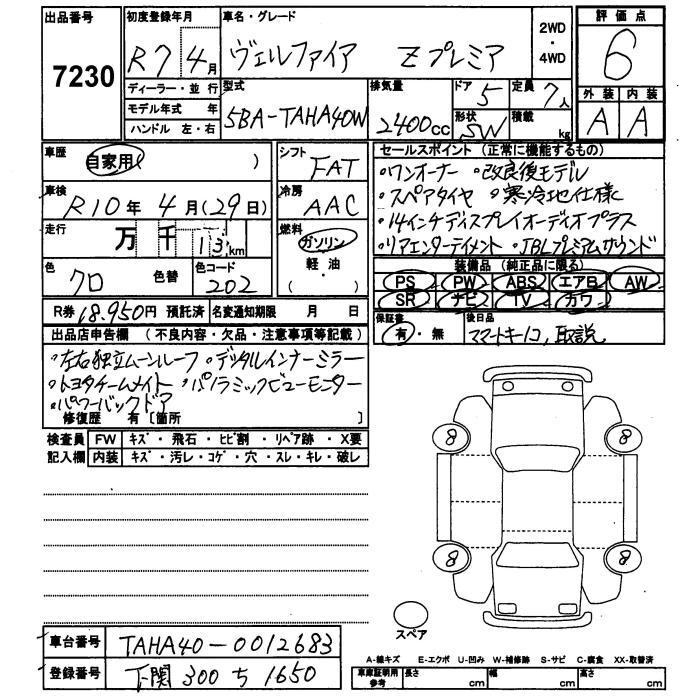 出品番号 7230
初度登録年月 R7年4月
車名・グレード ヴェルファイア Zプレミア
2WD ・ 4WD
評価点 6
外装 A 内装 A
ディーラー・並行
モデル年式 年
ハンドル 左・右
型式 5BA-TAHA40W
排気量 2400cc
ドア 5
形状 SW
定員 7人
積載 kg
車歴 自家用( )
車検 R10年4月(29日)
走行 万千13km
色 クロ 色替 色コード 202
シフト FAT
冷房 AAC
燃料 ガソリン 軽・油 ( )
R券 18,950円 預託済 名変通知期限 月 日
セールスポイント (正常に機能するもの)
・ワンオーナー ・改良後モデル
・スペアタイヤ ・寒冷地仕様
・14インチディスプレイオーディオプラス
・リアエンターテイメント ・JBLプレミアムサウンド
装備品 (純正品に限る)
PS PW ABS エアB AW
SR ナビ TV カワ
保証書 有・無
後日品 スマートキー1コ, 取説
出品店申告欄 (不良内容・欠品・注意事項等記載)
・左右独立ムーンルーフ ・デジタルインナーミラー
・トヨタチームメイト ・パノラミックビューモニター
・パワーバックドア
修復歴 有 [箇所 ]
検査員記入欄
FW キズ・飛石・ヒビ割・リペア跡・X要
内装 キズ・汚レ・コゲ・穴・スレ・キレ・破レ
8 8
8 8
スペア
車台番号 TAHA40-0012683
登録番号 下関 300 ち 1650
A-線キズ E-エクボ U-凹み W-補修跡 S-サビ C-腐食 XX-取替済
車庫証明用参考 長さ cm 幅 cm 高さ cm